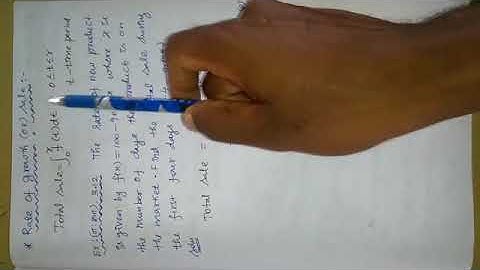 * Rate of growth (or) sale :-
Total sale = ∫₀ᵀ f(t) dt 0≤t≤T
t - time period
The sale of new product
is given by f(x) = 100 - 90 where x is
the number of days the product is on
the market. Find the total sale during
the first four days
Soln
Total sale =